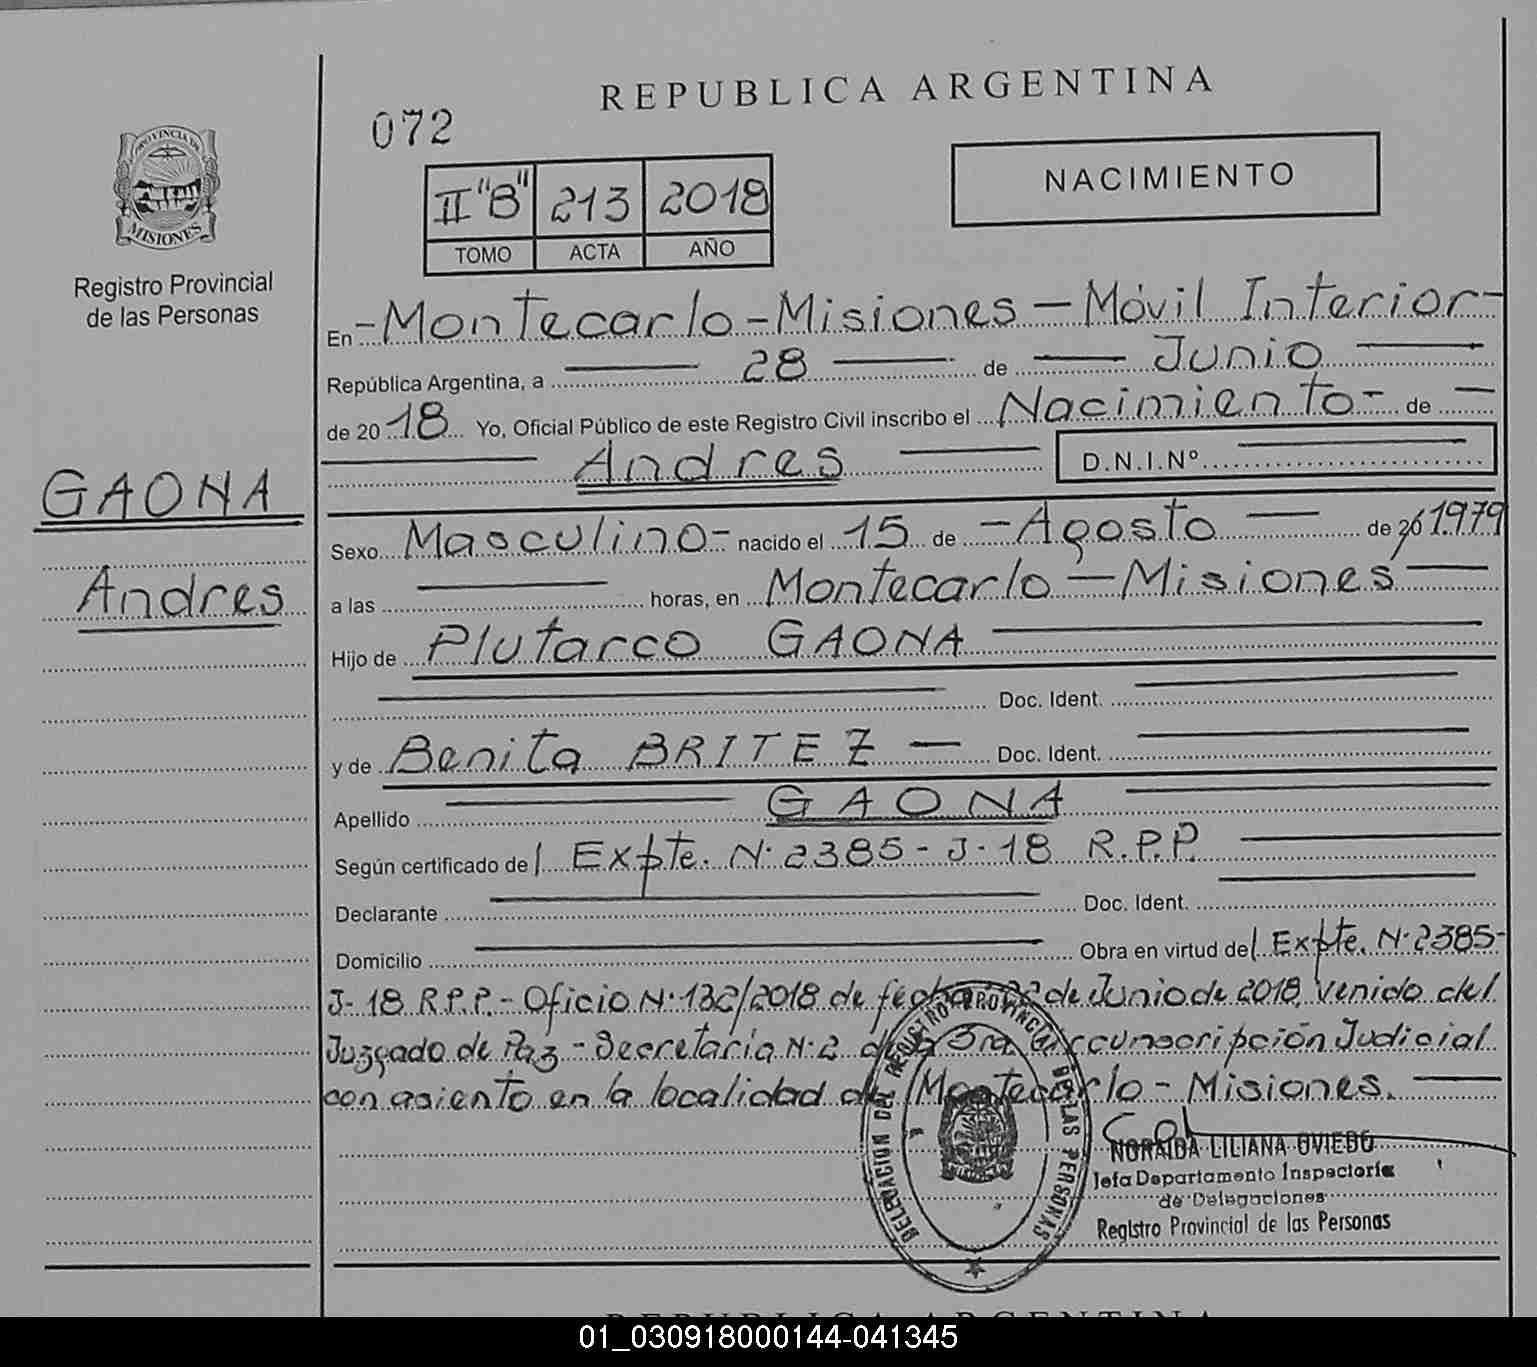 REPUBLICA ARGENTINA
072
NACIMIENTO
II "B" 213 2018
TOMO ACTA AÑO
PROVINCIA DE
MISIONES
Registro Provincial
de las Personas
GAONA
Andres
En - Montecarlo - Misiones - Móvil Interior -
República Argentina, a 28 de Junio
de 2018 Yo, Oficial Público de este Registro Civil inscribo el Nacimiento - de -
Andres D.N.I.Nº
Sexo Masculino - nacido el 15 de - Agosto - de 20 1979
a las horas, en Montecarlo - Misiones -
Hijo de Plutarco GAONA
Doc. Ident.
y de Benita BRITEZ - Doc. Ident.
Apellido GAONA
Según certificado de l Expte. N· 2385 - J - 18 R.P.P.
Declarante Doc. Ident.
Domicilio Obra en virtud del Expte. N· 2385-
J- 18 R.P.P. - Oficio N· 132/2018 de fecha de Junio de 2018, venido del
Juzgado de Paz - Secretaria N· 2 de la 3ra Circunscripción Judicial
con asiento en la localidad de Montecarlo - Misiones.
DELEGACION DEL REGISTRO PROVINCIAL DE LAS PERSONAS
NORAIDA LILIANA OVIEDO
Jefa Departamento Inspectoría
de Delegaciones
Registro Provincial de las Personas
REPUBLICA ARGENTINA
01_030918000144-041345